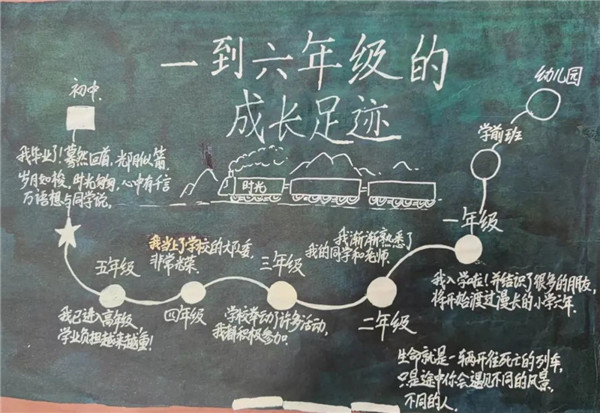 一到六年级的
成长足迹
幼儿园
学前班
一年级
我入学啦!并结识了很多的朋友,
将开始渡过漫长的小学六年.
时光
我渐渐熟悉了
我的同学和老师.
二年级
三年级
学校举办了许多活动,
我都积极参加.
我当上了学校的大队委,
非常光荣.
四年级
五年级
我已进入高年级,
学业负担越来越重!
初中.
我毕业了!蓦然回首,光阴似箭
岁月如梭,时光匆匆,心中有千言
万语想与同学说.
生命就是一辆开往死亡的列车,
只是途中你会遇见不同的风景,
不同的人.